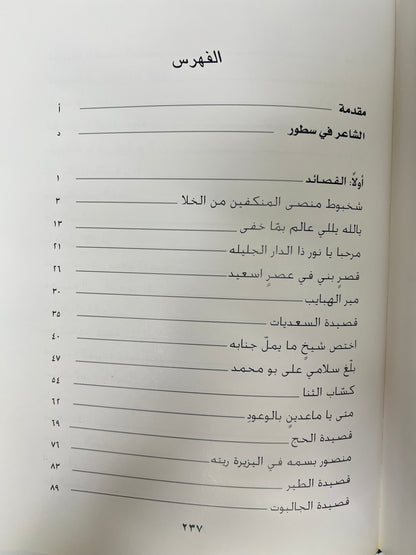 الفهرس
مقدمة أ
الشاعر في سطور د
أولاً: القصائد ١
شخبوط منصى المنكفين من الخلا ٣
بالله يللي عالم بمّا خفى ١٣
مرحبا يا نور ذا الدار الجليله ٢١
قصرٍ بني في عصرٍ اسعيد ٢٦
مير الهبايب ٣٠
قصيدة السعديات ٣٥
اختص شيخٍ ما يملّ جنابه ٤٠
بلّغ سلامي على بو محمد ٤٧
كسّاب الثنا ٥٤
متى يا ماعدينٍ بالوعودِ ٦٢
قصيدة الحج ٦٩
منصور بسمه في اليزيرة ريته ٧٦
قصيدة الطير ٨٣
قصيدة الجالبوت ٨٩
٢٣٧